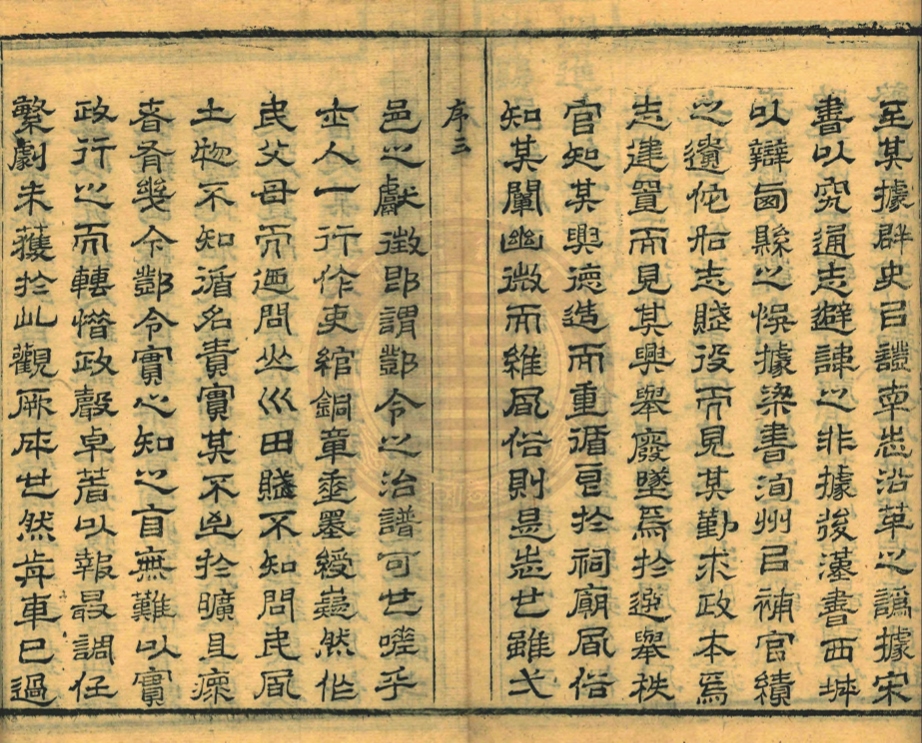 至其據群史㠯證章志沿革之譌據宋
書以究通志避諱之非據後漢書西域
以辯西縣之悞據梁書洵州㠯補官績
之遺佗如志賤役而見其勤求政本焉
志建置而見其興舉廢墜焉於選舉秩
官知其興德造而重循良於祠廟風俗
知其闡幽微而維風俗則是志也雖弌
序三
邑之獻徵即謂鄷令之治譜可也嗟乎
士人一行作吏綰銅章垂墨綬嶷然作
民父母而迺問山川田賤不知問民風
土物不知循名責實其不邑於曠且瘝
者有幾今鄷令實心知之盲無難以實
政行之而轉憯政聲卓著以報最調任
繁劇未獲於此觀厥成也然前車已過